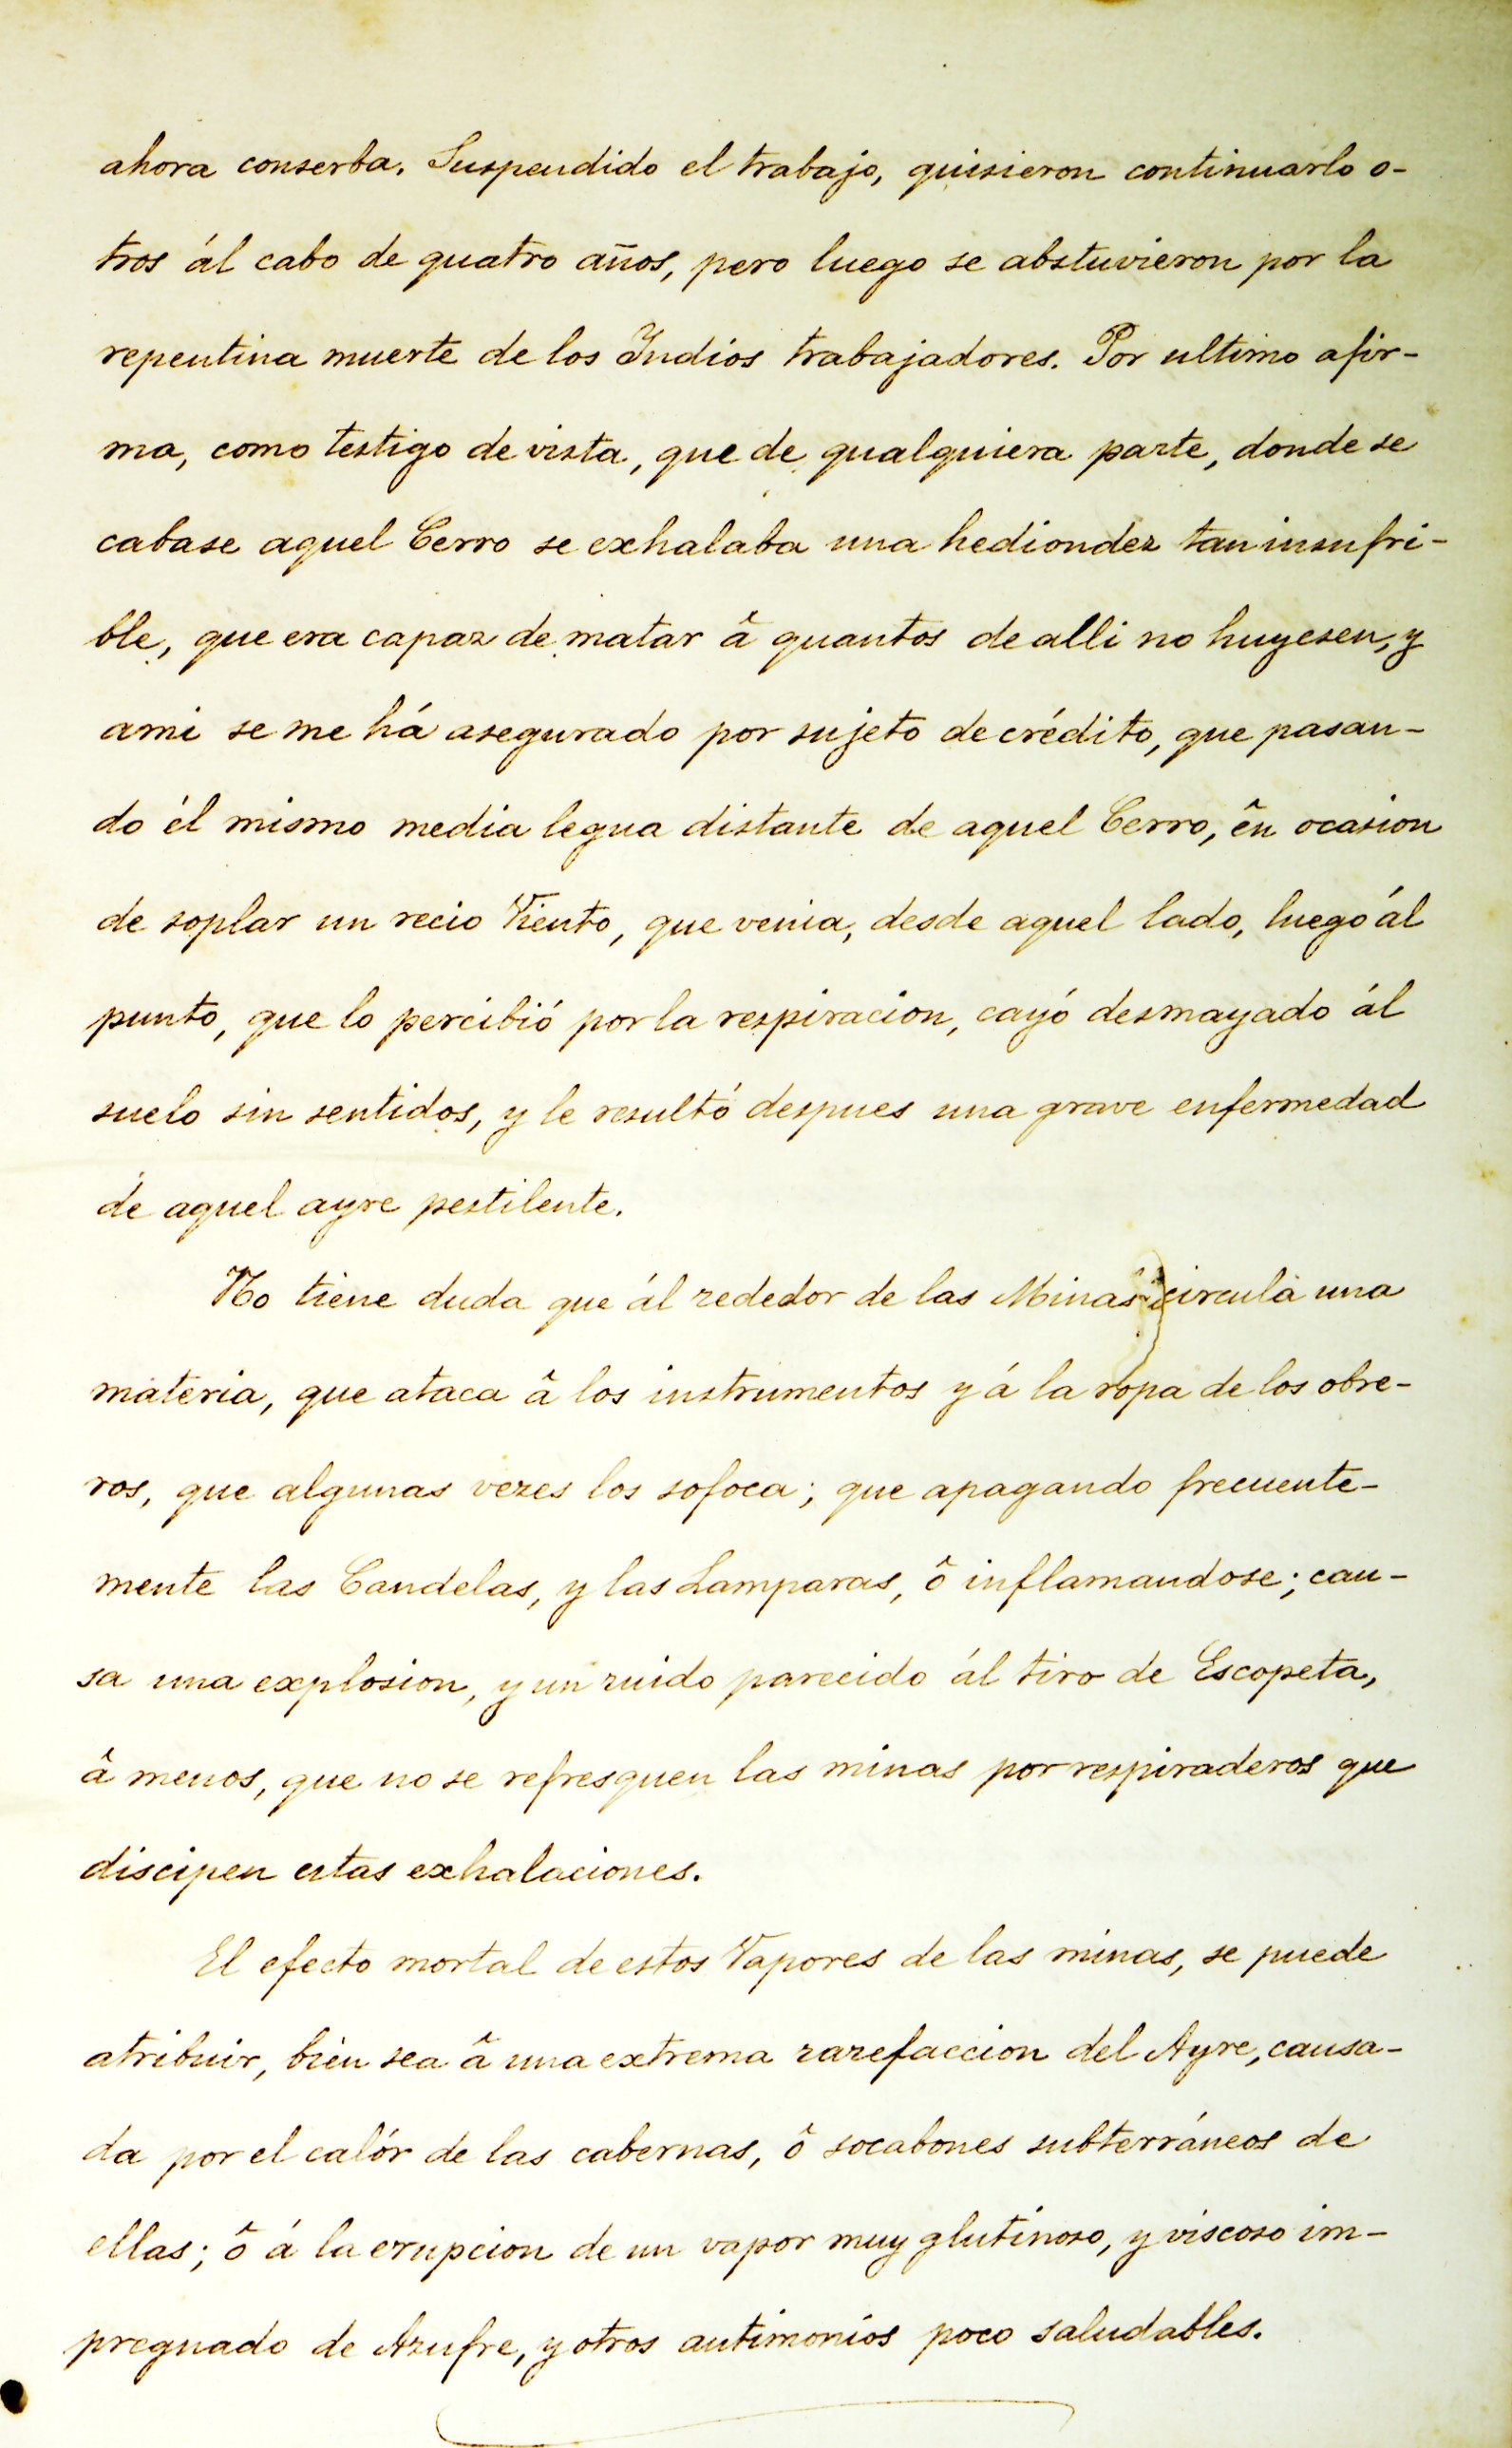 ahora conserba. Suspendido el trabajo, quisieron continuarlo o-
tros ál cabo de quatro años, pero luego se abstuvieron por la
repentina muerte de los Yndios trabajadores. Por ultimo afir-
ma, como testigo de vista, que de qualquiera parte, donde se
cabase aquel Cerro se exhalaba una hediondez tan insufri-
ble, que era capaz de matar â quantos de alli no huyesen, y
ami se me há asegurado por sujeto de crédito, que pasan-
do él mismo media legua distante de aquel Cerro, ên ocasion
de soplar un recio Viento, que venia, desde aquel lado, luego ál
punto, que lo percibió por la respiracion, cayó desmayado ál
suelo sin sentidos, y le resultó despues una grave enfermedad
de aquel ayre pestilente.
No tiene duda que ál rededor de las Minas circula una
materia, que ataca â los instrumentos y á la ropa de los obre-
ros, que algunas vezes los sofoca; que apagando frecuente-
mente las Candelas, y las Lamparas, ô inflamandose; cau-
sa una explosion, y un ruido parecido ál tiro de Escopeta,
â menos, que no se refresquen las minas por respiraderos que
discipen estas exhalaciones.
El efecto mortal de estos Vapores de las minas, se puede
atribuir, bien sea â una extrema rarefaccion del Ayre, causa-
da por el calór de las cabernas, ô socabones subterráneos de
ellas; ô á la erupcion de un vapor muy glutinoso, y viscoso im-
pregnado de Azufre, y otros autimonios poco saludables.